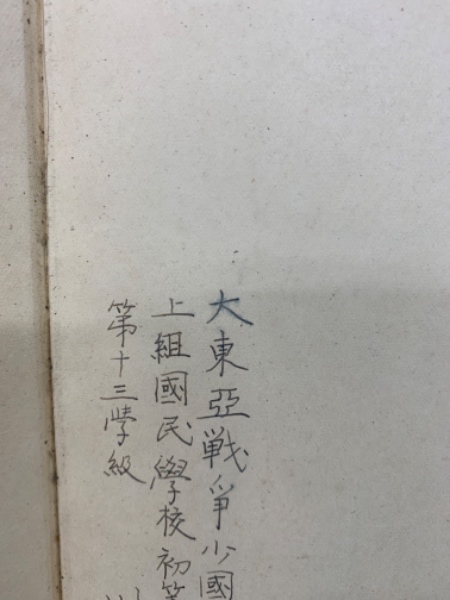 大東亞戦爭少國
上組國民學校初
第十三學級